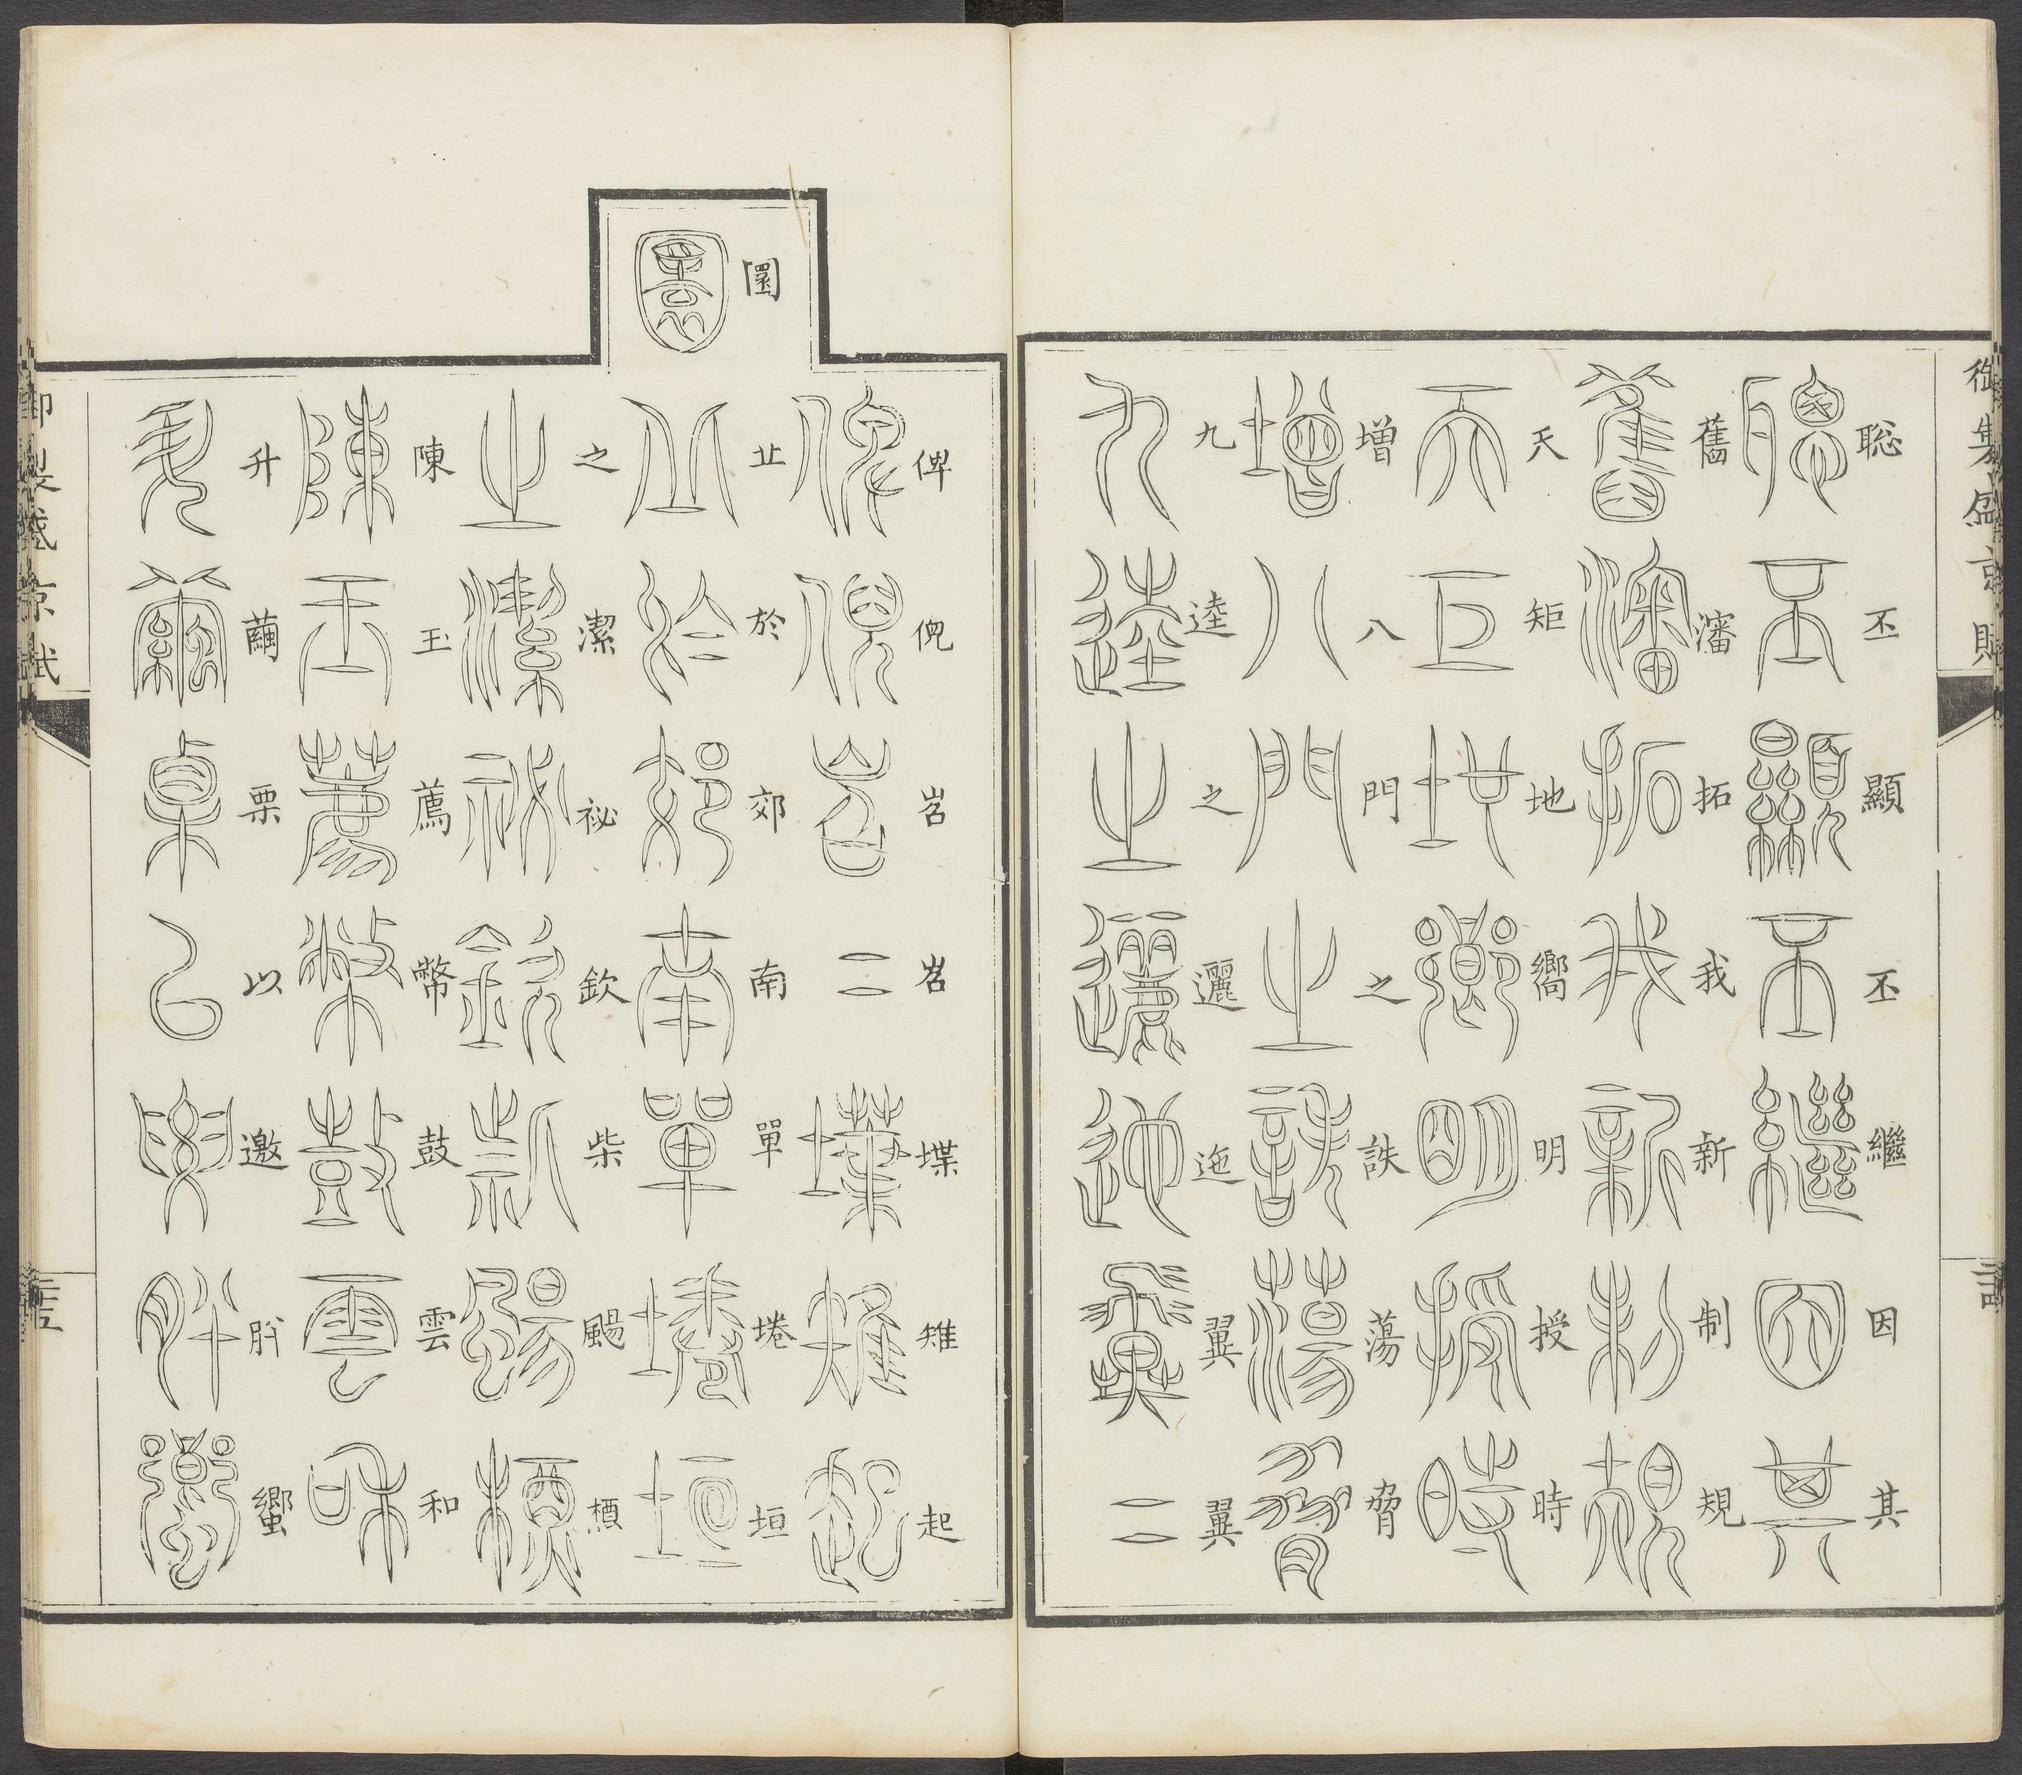 御製盛京賦
聡丕顯丕繼因其
舊瀋拓我新制規
天矩地嚮明授時
增八門之詄蕩脅
九逵之邐迤翼翼
俾倪岧岧堞雉起
圜丠於郊南單墧垣
之潔祕欽柴颺槱
陳玉薦幣鼓雲和
升繭栗以邀肸蠁
御製盛京賦